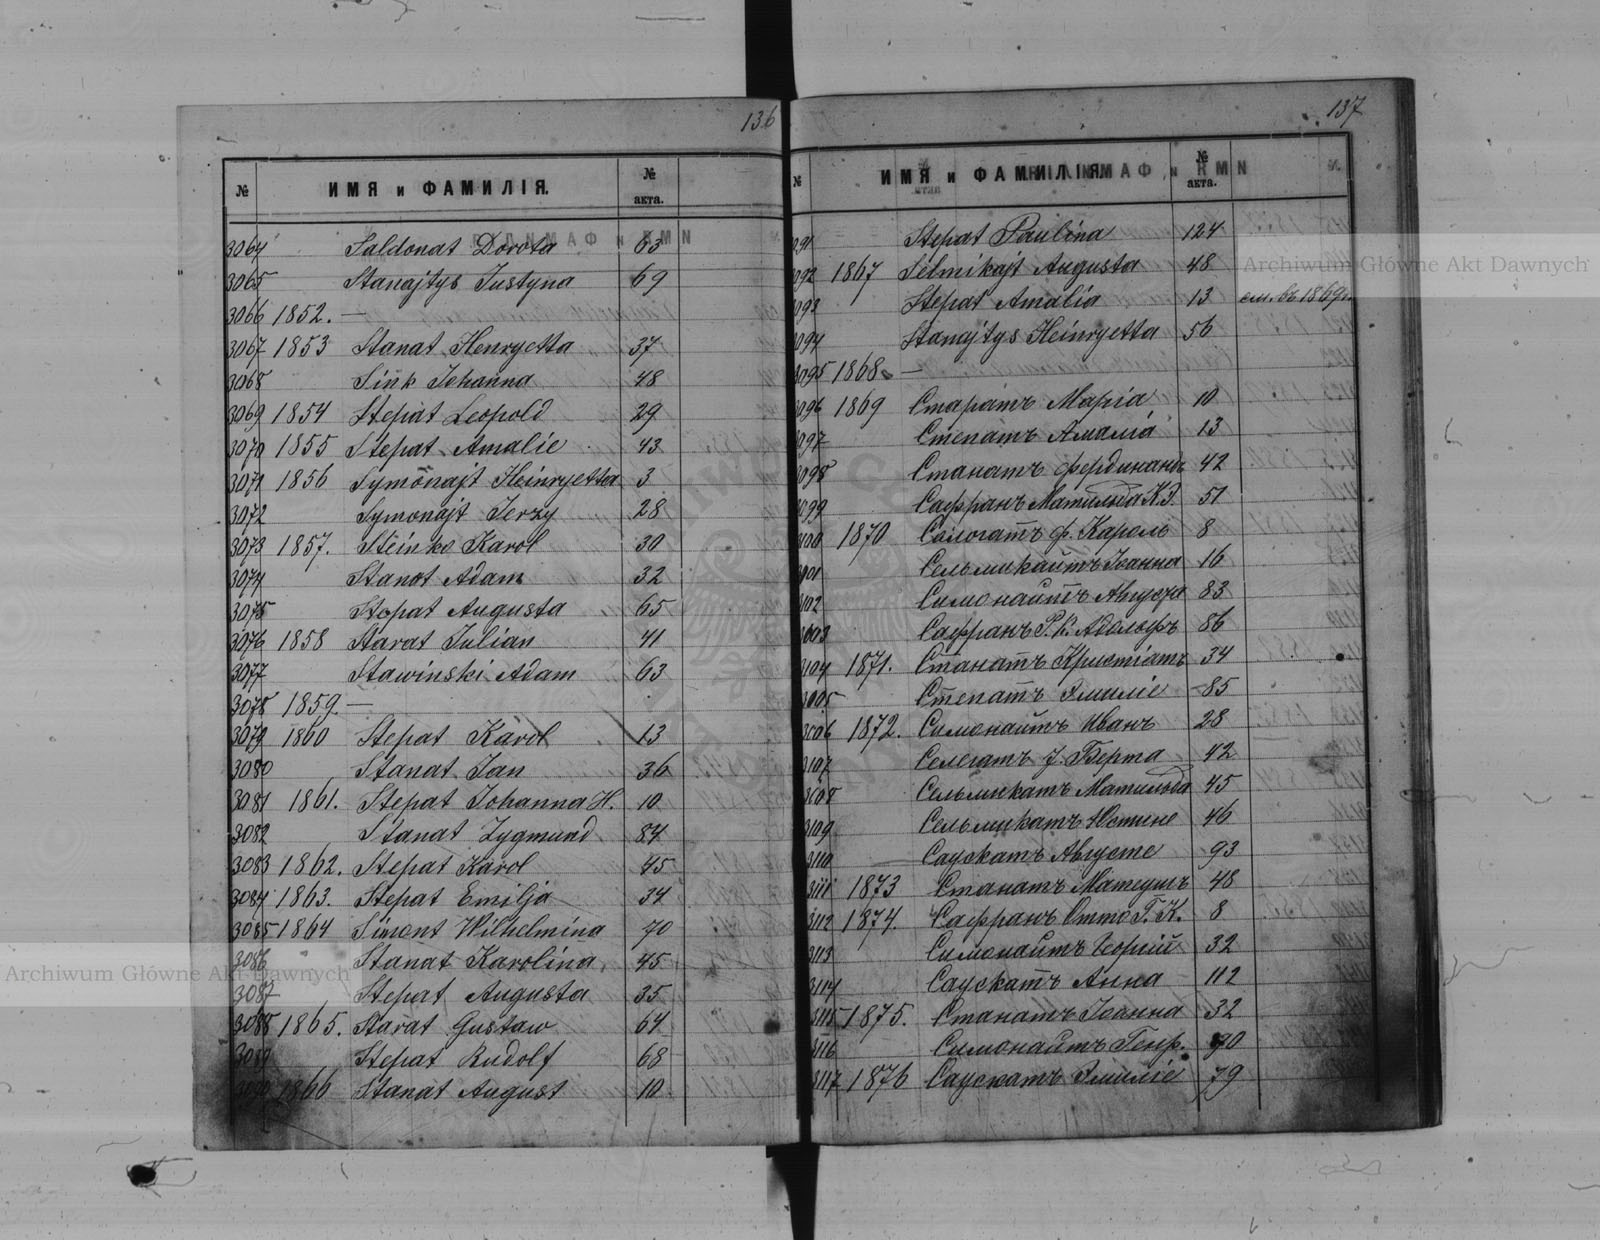 136
№ ИМЯ и ФАМИЛІЯ. № акта.
3064 Saldonat Dorota 63
3065 Stanajtys Justyna 69
3066 1852. —
3067 1853 Stanat Henryetta 37
3068 Sink Johanna 48
3069 1854 Stepat Leopold 29
3070 1855 Stepat Amalie 43
3071 1856 Symonajt Heinryetta 3
3072 Symonajt Jerzy 28
3073 1857. Steinke Karol 30
3074 Stanat Adam 32
3075 Stepat Augusta 65
3076 1858 Starat Julian 41
3077 Stawinski Adam 63
3078 1859. —
3079 1860 Stepat Karol 13
3080 Stanat Jan 36
3081 1861. Stepat Johanna H. 10
3082 Stanat Zygmund 84
3083 1862. Stepat Karol 45
3084 1863. Stepat Emilja 34
3085 1864 Simont Wilhelmina 70
3086 Stanat Karolina 45
3087 Stepat Augusta 35
3088 1865. Starat Gustaw 64
3089 Stepat Rudolf 68
3090 1866 Stanat August 10
137
№ ИМЯ и ФАМИЛІЯ № акта.
3091 Stepat Paulina 124
3092 1867 Selmikajt Augusta 48
3093 Stepat Amalia 13 см. въ 1869г.
3094 Stanajtys Heinryetta 56
3095 1868 —
3096 1869 Старатъ Марія 10
3097 Степатъ Амалія 13
3098 Станатъ Фердинандъ 42
3099 Сафранъ Матильда К.Э. 51
3100 1870 Сологатъ ф. Кароль 8
3101 Сельмикайтъ Іоанна 16
3102 Симонайтъ Августа 83
3103 Сафранъ Р. К. Адольфъ 86
3104 1871. Станатъ Кристіатъ 34
3105 Степатъ Эмиліе 85
3106 1872. Симонайтъ Иванъ 28
3107 Селегатъ J. Берта 42
3108 Сельмикатъ Матильда 45
3109 Сельмикатъ Юстине 46
3110 Саускатъ Августе 93
3111 1873 Станатъ Матеушъ 48
3112 1874. Сафранъ Отто Г. К. 8
3113 Симонайтъ Георгій 32
3114 Саускатъ Анна 112
3115 1875. Станатъ Іоанна 32
3116 Симонайтъ Генр. 90
3117 1876 Саускатъ Эмиліе 79
Archiwum Główne Akt Dawnych
Archiwum Główne Akt Dawnych